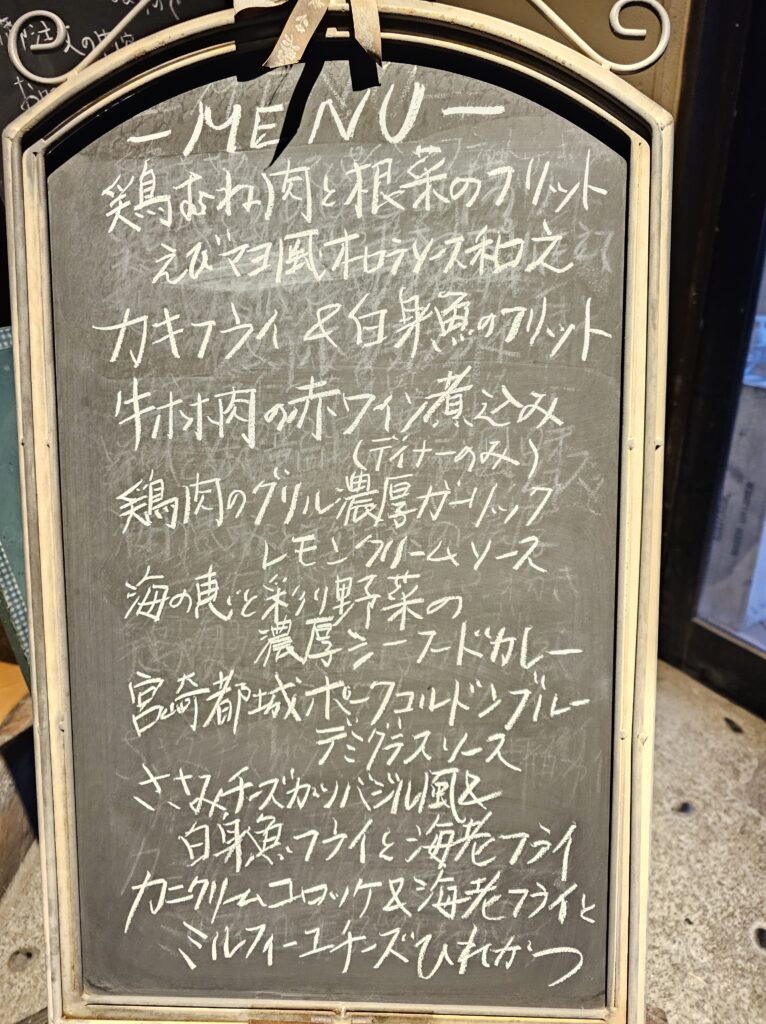 -MENU-
鶏むね肉と根菜のフリット
えびマヨ風オロラソース和え
カキフライ&白身魚のフリット
牛ホホ肉の赤ワイン煮込み
(ディナーのみ)
鶏肉のグリル濃厚ガーリック
レモンクリームソース
海の恵と彩り野菜の
濃厚シーフードカレー
宮崎都城ポークコルドンブルー
デミグラスソース
ささみチーズカツバジル風&
白身魚フライと海老フライ
カニクリームコロッケ&海老フライと
ミルフィーユチーズひれかつ